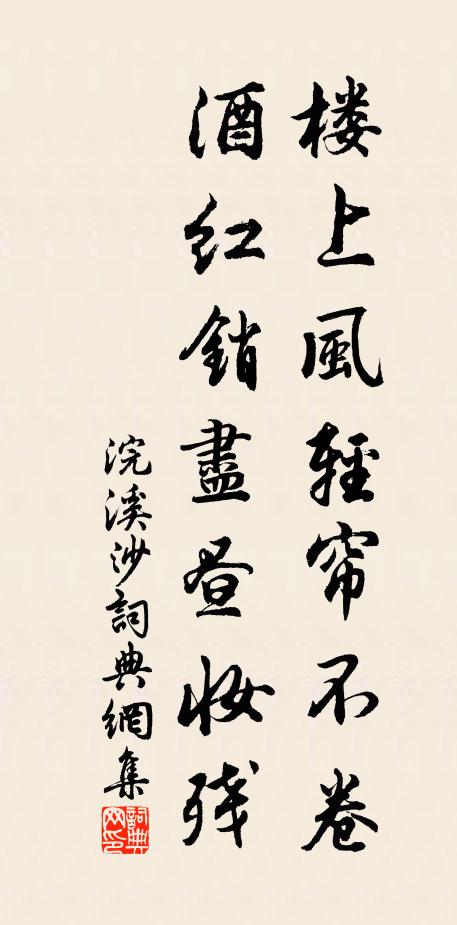 楼上風輕帘不卷
酒紅銷盡昼妝残
浣溪沙詞典網集
詞典
网印